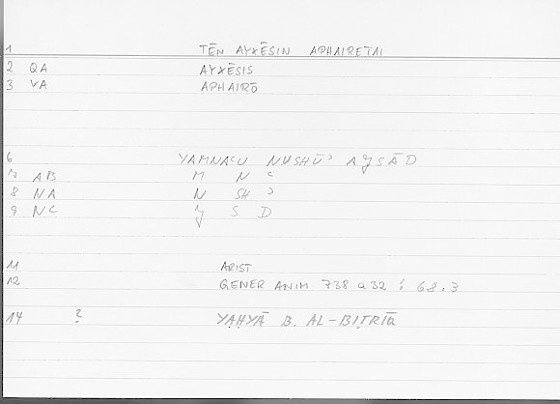 1 TĒN AYXĒSIN APHAIRETAI
2 QA AYXĒSIS
3 VA APHAIRŌ
6 YAMNAʿU NUSHŪʾ AǦSĀD
7 AB M N ʿ
8 NA N SH ʾ
9 NC Ǧ S D
11 ARIST
12 GENER ANIM 738 a 32 ; 68.3
14 ? YAḤYĀ B. AL-BIṬRĪQ